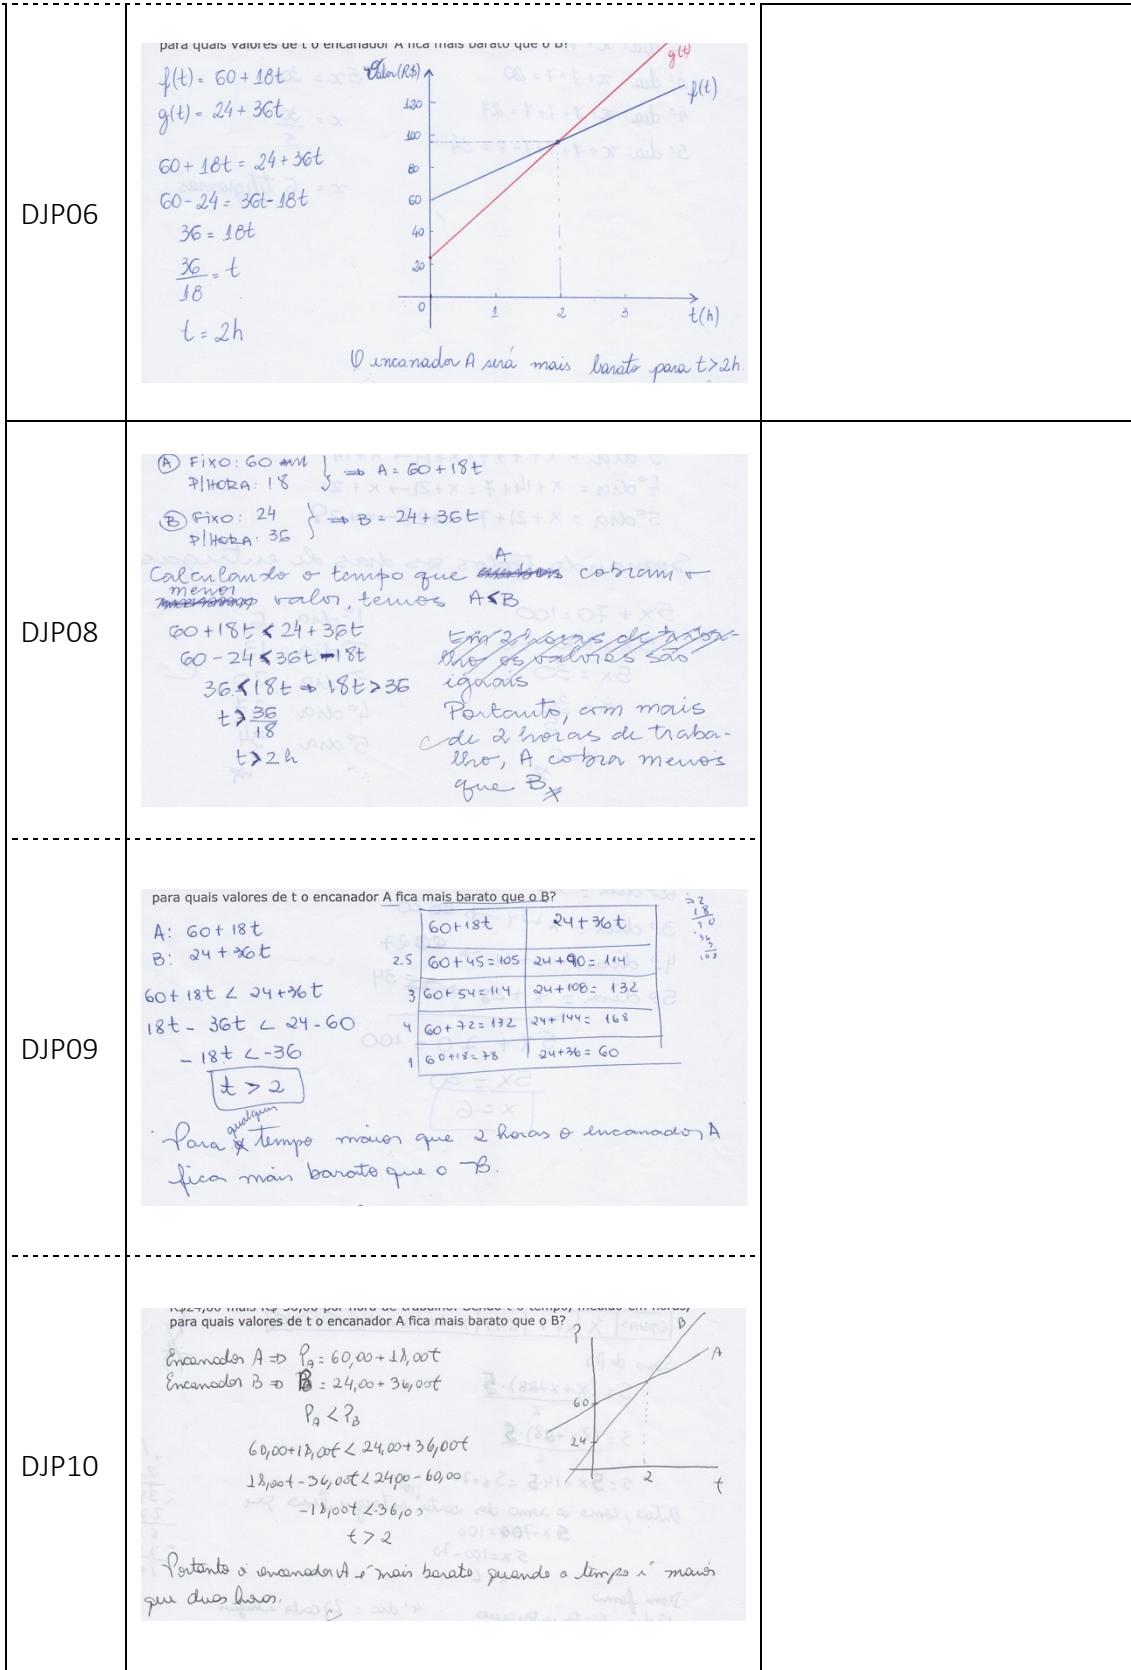 DJP06
para quais valores de t o encanador A fica mais barato que o B?
f(t) = 60 + 18t
g(t) = 24 + 36t
60 + 18t = 24 + 36t
60 - 24 = 36t - 18t
36 = 18t
36/18 = t
t = 2h
Valor (R$)
g(t)
f(t)
120
100
80
60
40
20
0
1
2
3
t(h)
O encanador A será mais barato para t > 2h.
DJP08
A FIXO: 60
P/HORA: 18
⇒ A = 60 + 18t
B FIXO: 24
P/HORA: 36
⇒ B = 24 + 36t
Calculando o tempo que A cobram o
menor valor, temos A < B
60 + 18t < 24 + 36t
60 - 24 < 36t - 18t
36 < 18t ⇒ 18t > 36
t > 36/18
t > 2h
Em 2 horas de traba-
lho os valores são
iguais
Portanto, com mais
de 2 horas de traba-
lho, A cobra menos
que B
DJP09
para quais valores de t o encanador A fica mais barato que o B?
A: 60 + 18t
B: 24 + 36t
60 + 18t < 24 + 36t
18t - 36t < 24 - 60
- 18t < -36
t > 2
60 + 18t 24 + 36t
2.5 60 + 45 = 105 24 + 90 = 114
3 60 + 54 = 114 24 + 108 = 132
4 60 + 72 = 132 24 + 144 = 168
1 60 + 18 = 78 24 + 36 = 60
Para qualquer tempo maior que 2 horas o encanador A
fica mais barato que o B.
DJP10
R$24,00 mais R$ 36,00 por hora de trabalho. Sendo t o tempo, medido em horas,
para quais valores de t o encanador A fica mais barato que o B?
Encanador A ⇒ PA = 60,00 + 18,00t
Encanador B ⇒ B = 24,00 + 36,00t
PA < PB
60,00 + 18,00t < 24,00 + 36,00t
18,00t - 36,00t < 24,00 - 60,00
-18,00t < -36,00
t > 2
P
B
A
60
24
2
t
Portanto o encanador A é mais barato quando o tempo é maior
que duas horas.